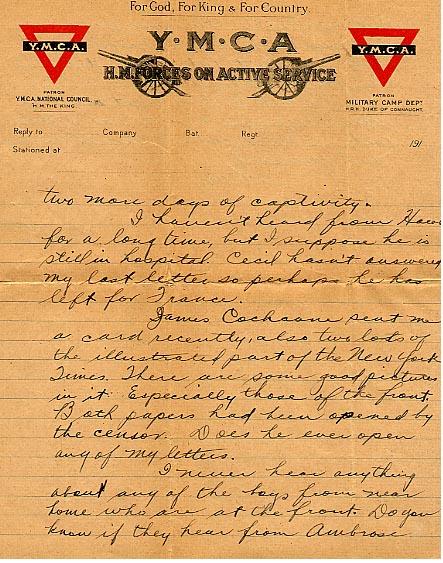 For God, For King & For Country.
Y.M.C.A.
Y·M·C·A
Y.M.C.A.
H.M. FORCES ON ACTIVE SERVICE
PATRON
Y.M.C.A. NATIONAL COUNCIL.
H.M. THE KING
PATRON
MILITARY CAMP DEPT
H.R.H. DUKE OF CONNAUGHT.
Reply to Company Bat. Regt.
Stationed at 191
two more days of captivity.
I haven't heard from
for a long time, but I suppose he is
still in hospital. Cecil hasn't answered
my last letter so perhaps he has
left for France.
James Cochrane sent me
a card recently, also two lots of
the illustrated part of the New York
Times. There are some good pictures
in it. Especially those of the front.
Both papers had been opened by
the censor. Does he ever open
any of my letters.
I never hear anything
about any of the boys from near
home who are at the front. Do you
know if they hear from Ambrose